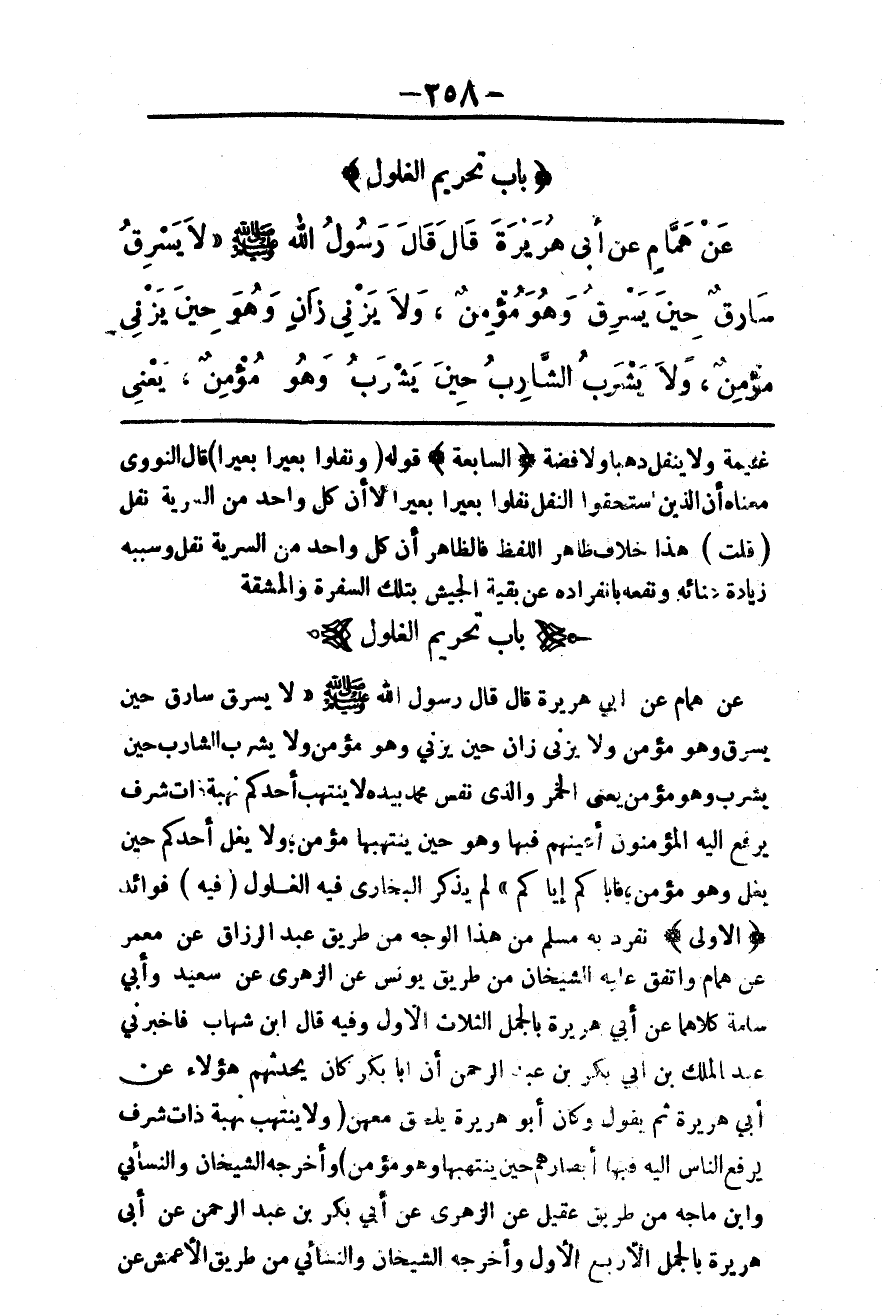 -٢٥٨-
﴿ باب تحريم الغلول ﴾
عَنْ هَمَّامٍ عن أَبى هُرَيْرَةَ قَالَ قَالَ رَسُولُ اللهِ ﷺ « لاَ يَسْرِقُ
سَارِقٌ حِينَ يَسْرِقُ وَهُوَ مُؤْمِنٌ ، وَلاَ يَزْنِى زَانٍ وَهُوَ حِينَ يَزْنِى
مُؤْمِنٌ ، وَلاَ يَشْرَبُ الشَّارِبُ حِينَ يَشْرَبُ وَهُوَ مُؤْمِنٌ ، يَعْنِى
غنيمة ولا ينفل ذهبا ولا فضة ﴿ السابعة ﴾ قوله ( ونفلوا بعيرا بعيرا ) قال النووى
معناه أن الذين استحقوا النفل نفلوا بعيرا بعيرا لا أن كل واحد من السرية نفل
( قلت ) هذا خلاف ظاهر اللفظ فالظاهر أن كل واحد من السرية نفل وسببه
زيادة عنائه ونفعه بانفراده عن بقية الجيش بتلك السفرة والمشقة
باب تحريم الغلول
عن همام عن ابي هريرة قال قال رسول الله ﷺ « لا يسرق سارق حين
يسرق وهو مؤمن ولا يزنى زان حين يزني وهو مؤمن ولا يشرب الشارب حين
يشرب وهو مؤمن يعنى الخمر والذى نفس محمد بيده لا ينتهب أحدكم نهبة ذات شرف
يرفع اليه المؤمنون أعينهم فيها وهو حين ينتهبها مؤمن ؛ ولا يغل أحدكم حين
يغل وهو مؤمن ؛ فايا كم إيا كم » لم يذكر البخارى فيه الغلول ( فيه ) فوائد
﴿ الاولى ﴾ تفرد به مسلم من هذا الوجه من طريق عبد الرزاق عن معمر
عن همام واتفق عليه الشيخان من طريق يونس عن الزهرى عن سعيد وأبي
سلمة كلاهما عن أبي هريرة بالجمل الثلاث الأول وفيه قال ابن شهاب فاخبرني
عبد الملك بن ابي بكر بن عبد الرحمن أن ابا بكر كان يحدثهم هؤلاء عن
أبي هريرة ثم يقول وكان أبو هريرة يلحق معهن ( ولا ينتهب نهبة ذات شرف
يرفع الناس اليه فيها أبصارهم حين ينتهبها وهو مؤمن ) وأخرجه الشيخان والنسأئي
وابن ماجه من طريق عقيل عن الزهرى عن أبي بكر بن عبد الرحمن عن أبى
هريرة بالجمل الأربع الأول وأخرجه الشيخان والنسائي من طريق الأعمش عن